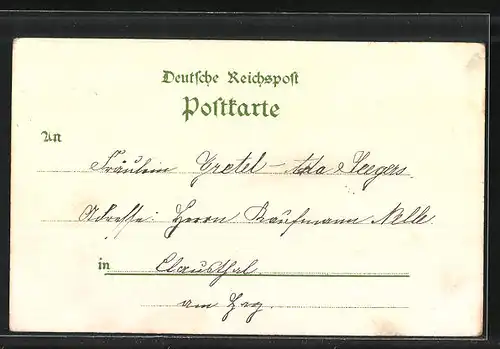 Deutsche Reichspost
Postkarte
An
Fräulein Gretel-Ada Seegers.
Adresse: Herrn Kaufmann Nelle
in Clausthal
am Hrz.